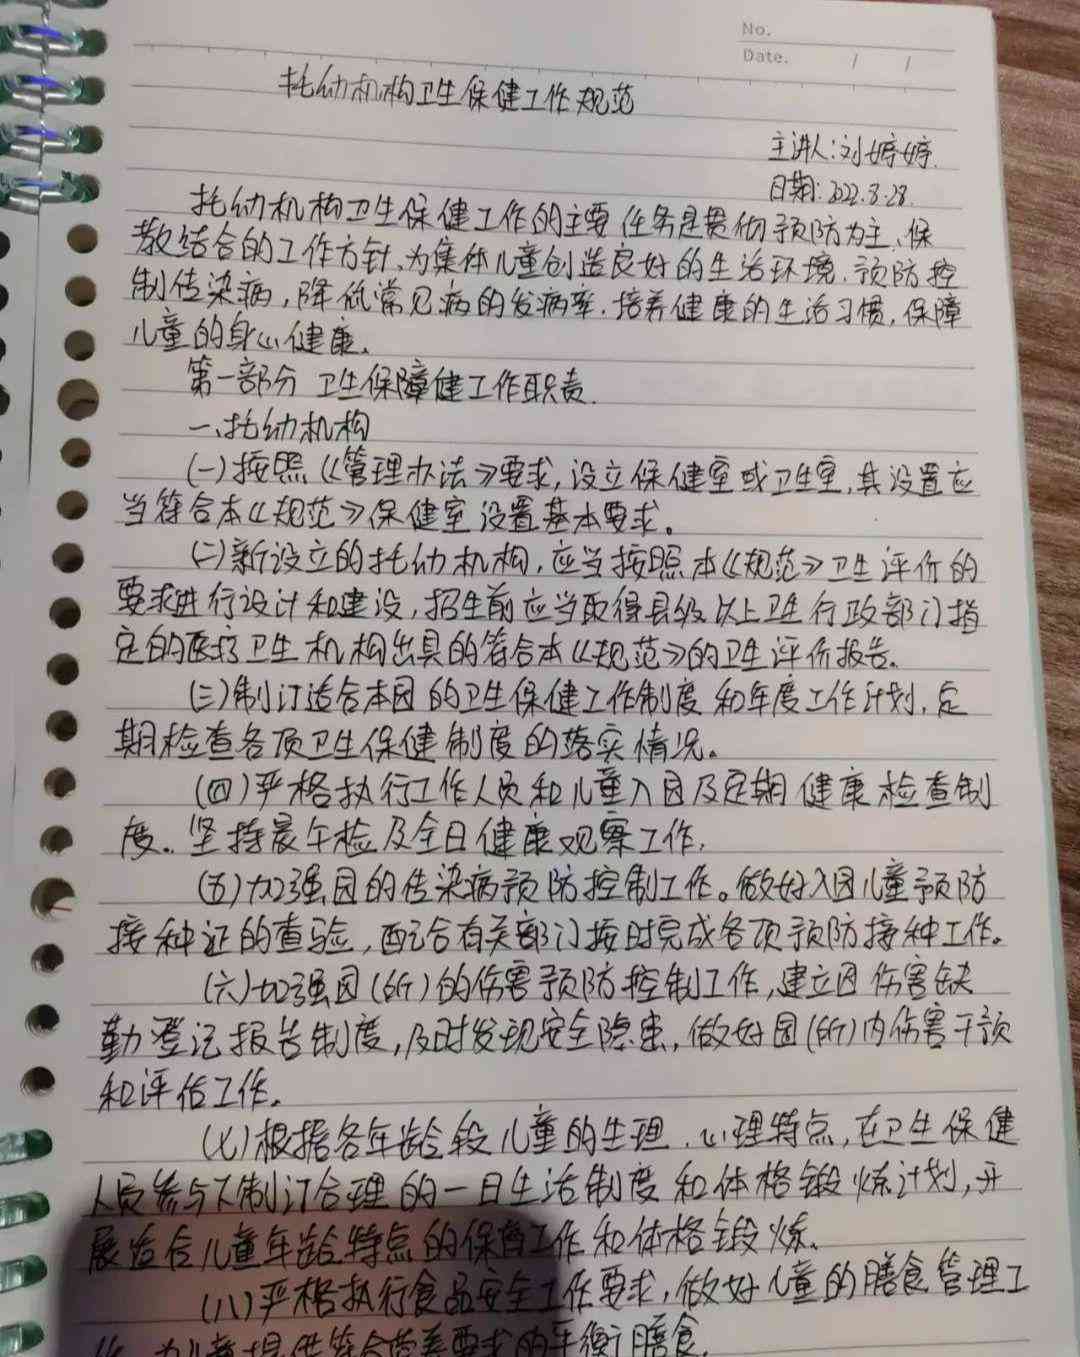 No.
Date. / /
托幼机构卫生保健工作规范
主讲人:刘婷婷.
日期:2022.3.28.
托幼机构卫生保健工作的主要任务是贯彻预防为主、保
教结合的工作方针、为集体儿童创造良好的生活环境.预防控
制传染病,降低常见病的发病率.培养健康的生活习惯,保障
儿童的身心健康.
第一部分 卫生保障健工作职责.
一、托幼机构
(一)按照《管理办法》要求,设立保健室或卫生室,其设置应
当符合本《规范》保健室设置基本要求。
(二)新设立的托幼机构,应当按照本《规范》卫生评价的
要求进行设计和建设,招生前应当取得县级以上卫生行政部门指
定的医疗卫生机构出具的符合本《规范》的卫生评价报告.
(三)制订适合本园的卫生保健工作制度和年度工作计划,定
期检查各项卫生保健制度的落实情况。
(四)严格执行工作人员和儿童入园及定期健康检查制
度..坚持晨午检及全日健康观察工作,
(五)加强园的传染病预防控制工作。做好入园儿童预防
接种证的查验,配合有关部门按时完成各项预防接种工作。
(六)加强园(所)的伤害预防控制工作,建立因伤害缺
勤登记报告制度,及时发现安全隐患,做好园(所)内伤害干预
和评估工作.
(七)根据各年龄段儿童的生理、心理特点,在卫生保健
人员参与下制订合理的一日生活制度和体格锻炼计划,开
展适合儿童年龄特点的保育工作和体格锻炼.
(八)严格执行食品安全工作要求,做好儿童的膳食管理工
作,为儿童提供符合营养要求的平衡膳食.